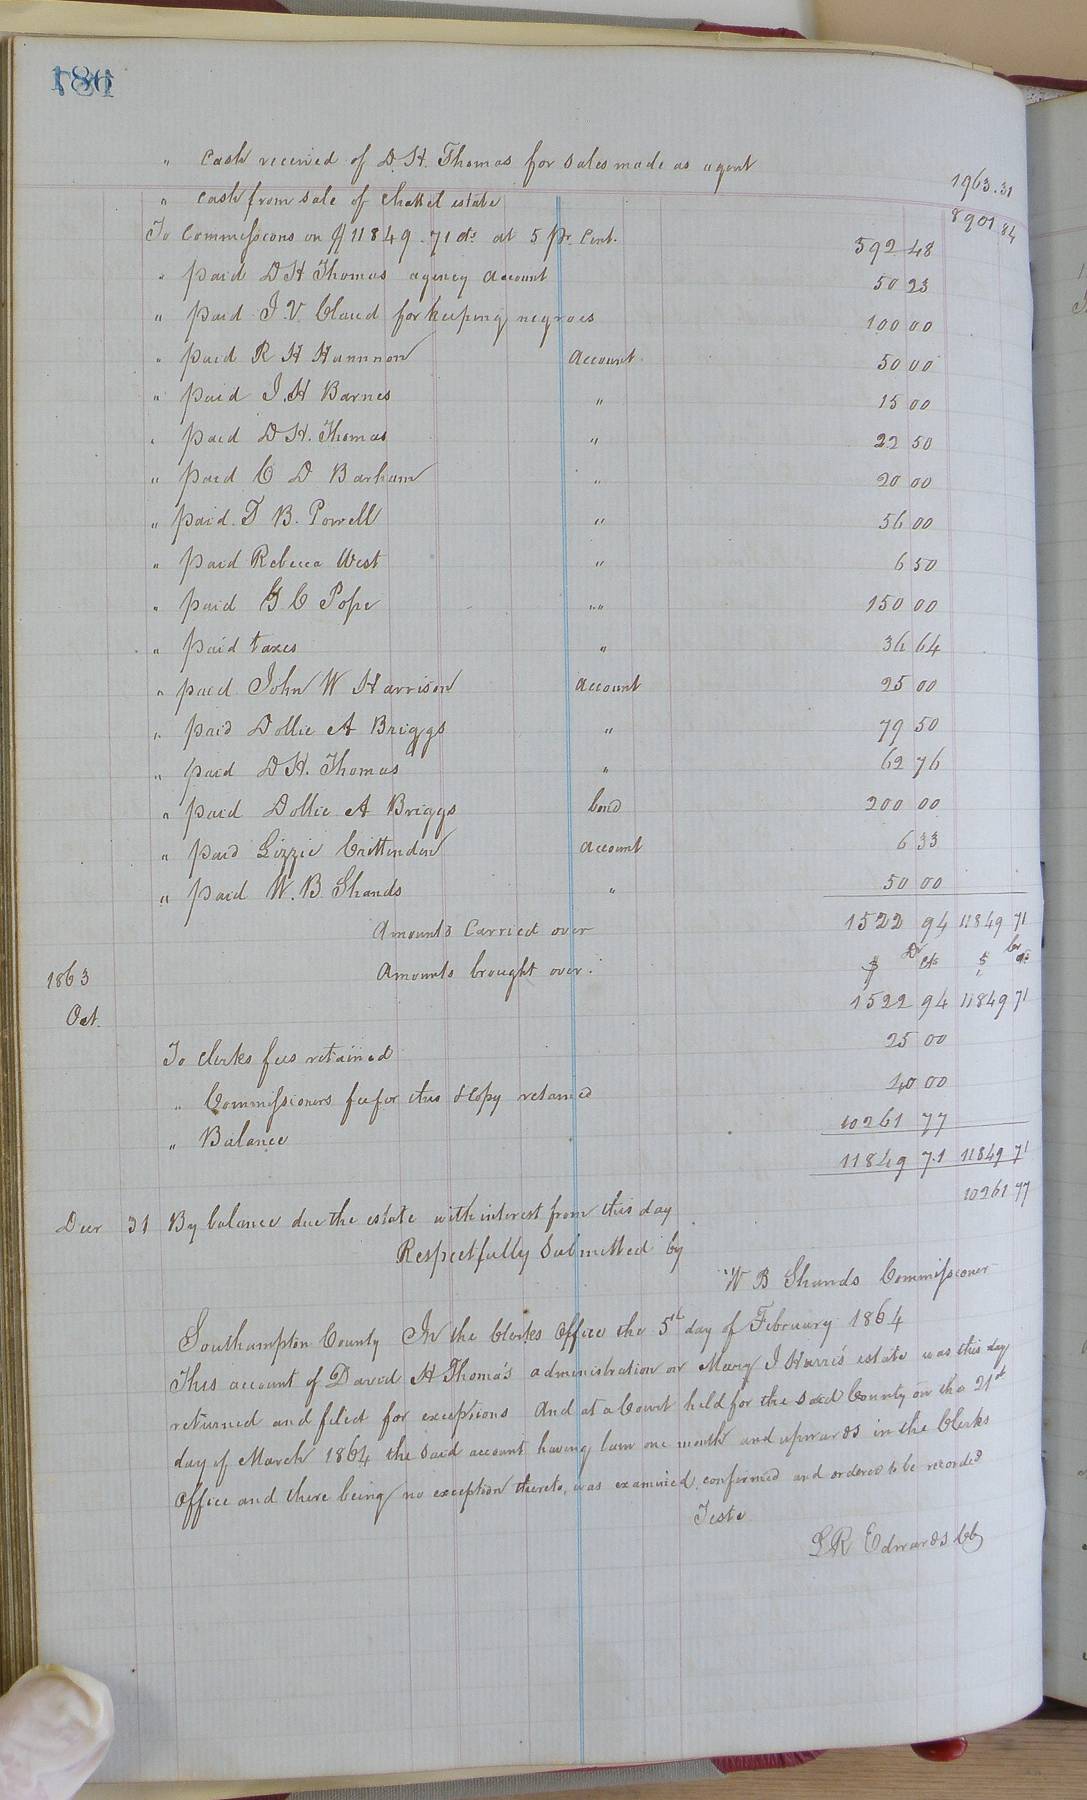 186
" Cash received of D. H. Thomas for sales made as agent 1963.31
" Cash from sale of chattel estate 8901 84
To Commissions on $11849.71 cts at 5 pr. Cent. 592 48
" paid D H Thomas agency account 50 23
" paid J. V. Claud for keeping negroes 100 00
" paid R H Hannnon Account 50 00
" paid J. H Barnes " 15 00
" paid D H. Thomas " 22 50
" paid C D Barham " 20 00
" paid T B. Powell " 56 00
" paid Rebecca West " 6 50
" paid G C Pope " 150 00
" paid taxes " 36 64
" paid John W Harrison account 25 00
" paid Dollie A Briggs " 79 50
" paid D H. Thomas " 62 76
" paid Dollie A Briggs bond 200 00
" paid Lizzie Crittenden account 6 33
" paid W. B Shands " 50 00
Amounts Carried over 1522 94 11849 71
1863 Amounts brought over. $ Dr cts $ Cr cts
Oct. 1522 94 11849 71
To clerks fees retained 25 00
" Commissioners fee for this & copy retained 40 00
" Balance 10261 77
11849 71 11849 71
Decr 31 By balance due the estate with interest from this day 10261 77
Respectfully Submitted by
W B Shands Commissioner
Southampton County In the Clerks Office the 5th day of February 1864
This account of David H Thomas's administration on Mary J Harris estate was this day
returned and filed for exceptions And at a Court held for the said County on the 21st
day of March 1864 the said account having lain one month and upwards in the Clerks
Office and there being no exception thereto, was examined, confirmed and ordered to be recorded
Teste
L R Edwards CC